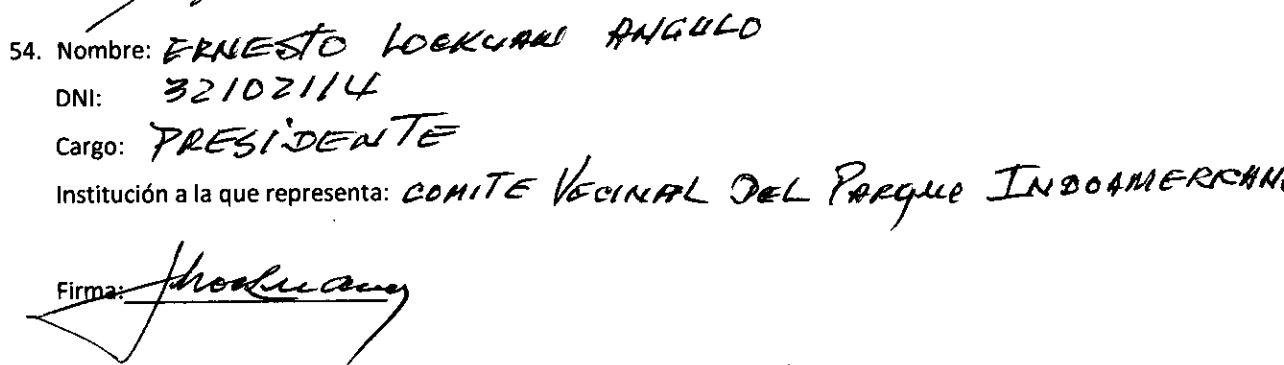 54. Nombre: ERNESTO LOCKUAN ANGULO
DNI: 32102114
Cargo: PRESIDENTE
Institución a la que representa: COMITE VECINAL DEL PARQUE INDOAMERICANO
Firma: